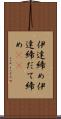 伊達締め伊
達締だて締
め